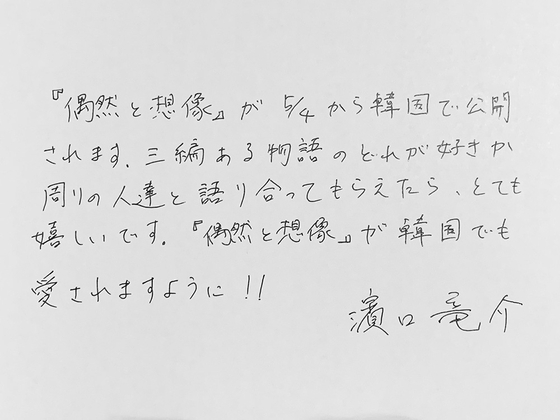 『偶然と想像』が 5/4 から韓国で公開
されます。三編ある物語のどれが好きか
周りの人達と語り合ってもらえたら、とても
嬉しいです。『偶然と想像』が韓国でも
愛されますように!!
濱口竜介